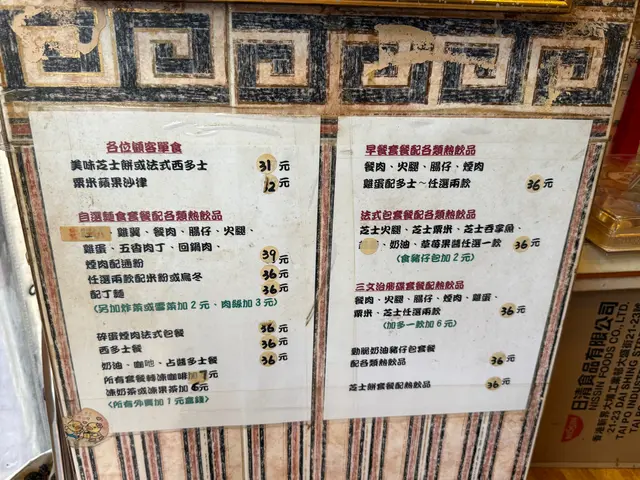 各位顧客單食
美味芝士餅或法式西多士 31元
粟米蘋果沙律 12元
自選麵食套餐配各類熱飲品
雞翼、餐肉、腸仔、火腿、
雞蛋、五香肉丁、回鍋肉、
煙肉配通粉 39元
任選兩款配米粉或烏冬 36元
配丁麵 36元
(另加炸菜或雪菜加 2 元、肉絲加 3 元)
碎蛋煙肉法式包餐 36元
西多士餐 36元
奶油、咖吔、占醬多士餐 36元
所有套餐轉凍咖啡加 7元
凍奶茶或凍果茶加 6元
(所有外賣加 1 元盒錢)
早餐套餐配各類熱飲品
餐肉、火腿、腸仔、煙肉
雞蛋配多士~任選兩款 36元
法式包套餐配各類熱飲品
芝士火腿、芝士粟米、芝士吞拿魚
、奶油、草莓果醬任選一款 36元
(食豬仔包加 2 元)
三文治飛碟套餐配熱飲品
餐肉、火腿、腸仔、煙肉、雞蛋、
粟米、芝士任選兩款 36元
(加多一款加 6 元)
動脆奶油豬仔包套餐
配各類熱飲品 36元
芝士餅套餐配熱飲品 36元
日清食品有限公司
NISSIN FOODS CO., LTD.
21-23 DAI SHING
TAI PO INDU
NISSIN